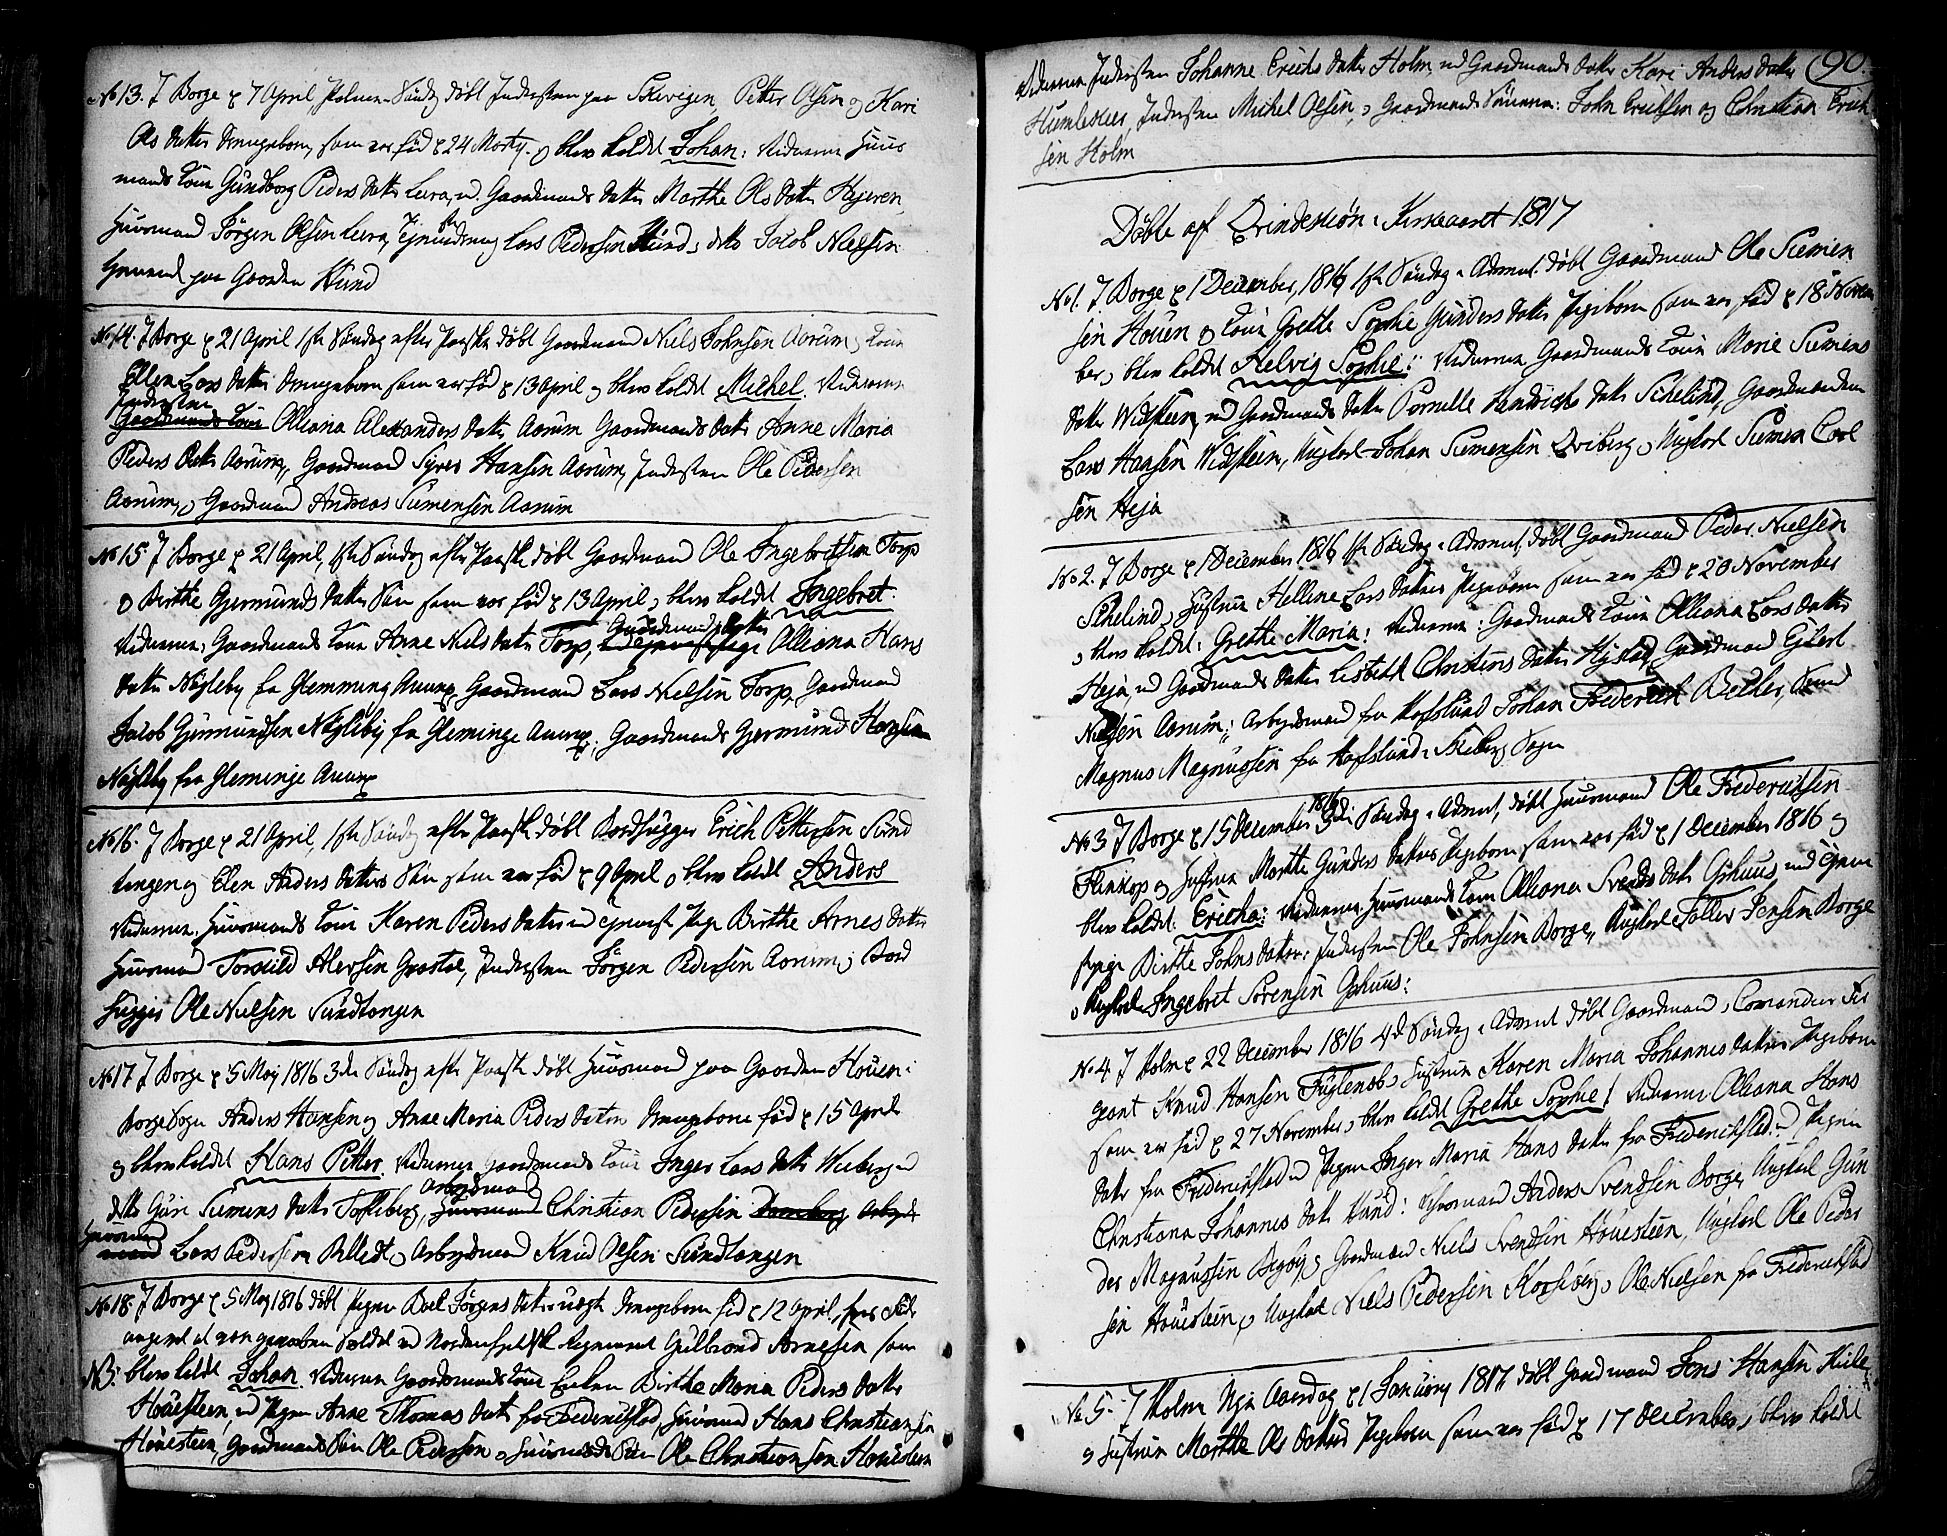 No 13. I Borge d 7 April Palme Søndag døbt Indersten paa Skivigen Petter Olsen og Kari
Ols datter drengebarn, som var fød d 24 Marty og blev kaldet Johan: Vidnerne Huus
mands Kone Gundborg Peders datter Lera, ed. Gaardmands datter Marthe Ols datter Hejeren,
Huusmand Jørgen Olsen Lera, Lars Pedersen Hund, ditto Jacob Nielsen
paa Gaarden Hund
No 14. I Borge d 21 April 1ste Søndag efter Paaske døbt Gaardmand Niels Johnsen Aarum og Kone
Ellen Lars datters drengebarn som var fød d 13 April og blev kaldet Michel. Vidnerne
Indersten
Gaardmands Kone Olliana Alexanders datter Aarum Gaardmands datter Anne Maria
Peders datter Aarum, Gaardmand Syver Hansen Aarum, Indersten Ole Pedersen
Aarum, og Gaardmand Andreas Siemensen Aarum
No 15. I Borge d 21 April, 1ste Søndag efter Paaske døbt Gaardmand Ole Ingebrethsen Torp
og Birthe Gjermunds datters Søn som var fød d 13 April og blev kaldet Ingebret.
Vidnerne: Gaardmands Kone Anne Niels datter Torp, Gaardmands datter Olliana Hans
datter Nøgleby fra Glemminge Annex, Gaardmand Lars Nielsen Torp, Gaardmand
Jacob Gjermundsen Nøgleby fra Gleminge Annex, Gaardmands Gjermund Hansen
Nøgleby fra Gleminge Annex
No 16. I Borge d 21 April, 1ste Søndag efter Paaske døbt Bordhugger Erich Pettersen Sund
tangen og Elen Anders datters Søn som var fød d 9 April og blev kaldet Anders
Vidnerne. Huusmands Kone Karen Peders datter ed Pige Birthe Arnes datter
Huusmand Torkild Alexsen Graatøe, Indersten Jørgen Pedersen Aarum og Bord
hugger Ole Nielsen Sundtangen
No 17. I Borge d 5 May 1816 3die Søndag efter Paaske døbt Huusmand paa Gaarden Houen i
Borge Sogn Anders Hansen og Anne Maria Peders datter drengebarn fød d 15 April
og blev kaldet Hans Petter. Vidnerne Gaardmands Kone Inger Lars datter Wiiberg ed
ditto Guri Siemens datter Tofteberg, Arbejdsmand Huusmand Christian Pedersen Damberg Arbejds
Huusmand mand Lars Pedersen Pelledt og Arbejdsmand Knud Olsen Sundtangen
No 18. I Borge d 5 May 1816 døbt Pigen Boel Jørgens datters uægte drengebarn fød d 12 April, Fader
angivet at være Soldat ved Nordenfjeldske Regiment Gulbrand Arnesen som
NB: blev kaldt Johan. Vidnerne Gaardmands Kone Enken Birthe Maria Peders datter
Houesteen, ed Pigen Anne Thomas datter fra Frederichstad, Huusmand Hans Christiansen
Houesteen, Gaardmands Søn Ole Pedersen og Huusmands Søn Ole Christiansen Houesteen
90.
Vidnerne Indersten Johanne Erichs datter Holm, ed Gaardmands datter Kari Anders datter
Humlekier, Indersten Michel Olsen, og Gaardmands Sønnerne: John Erichsen og Christian Erich
sen Holm
Døbte af Qvindekiøn i Kirkeaaret 1817
No 1. I Borge d 1 December, 1816 1ste Søndag i Advent døbt Gaardmand Ole Siemen
sen Houen og Kone Grethe Sophie Gunders datter Pigebarn som var fød d 18 Novem
ber, og blev kaldet Helvig Sophie: Vidnerne, Gaardmands Kone Marie Siemens
datter Widsteen, ed Gaardmands datter Pernille Hendrichs datter Schelind, Gaardmanden
Lars Hansen Widsteen, Ungkarl Johan Siemensen Qviberg og Ungkarl Siemen Carl
sen Heja
No 2. I Borge d 1 December 1816 1ste Søndag i Advent, døbt Gaardmand Peder Nielsen
Schelind og Hustrue Helline Lars datters Pigebarn som var fød d 20 November
og blev kaldet: Grethe Maria: Vidnerne: Gaardmands Kone Olliana Lars datter
Heja, ed Gaardmands datter Lisbeth Christens datter Hystad, Gaardmand Ejlert
Nielsen Aarum, Arbejdsmand fra Hafslund Johan Frederich Becher, Svend
Magnus Magnussen fra Hafslund i Skieberg Sogn
No 3 I Borge d 15 December 1816 3die Søndag i Advent, døbt Huusmand Ole Frederichsen
Flinktorp og Hustrue Marthe Gunders datters Pigebarn som var fød d 1 December 1816 og
blev kaldet: Ericha: Vidnerne: Huusmands Kone Olliana Svends datter Gihuus ed
Pige Birthe Johns datter: Indersten Ole Johnsen Borge, Ungkarl Toller Jensen Borge
og Ungkarl Ingebret Sørensen Gihuus:
No 4 I Holm d 22 December 1816 4de Søndag i Advent døbt Gaardmand og Comandeer Ser
geant Knud Hansen Fuglenæb og Hustrue Karen Maria Johannes datters Pigebarn
som var fød d 27 November og blev kaldet Grethe Sophie! Vidnerne Olliana Hans
datter fra Frederichstad ed Pigen Inger Maria Hans datter fra Frederichstad ed Pigen
Christiana Johannes datter Hund: Huusmand Anders Svendsen Borge, Ungkarl Gun
der Magnussen Begby og Gaardmand Niels Svendsen Houesteen, Ungkarl Ole Peder
sen Houesteen og Ungkarl Niels Pedersen Korseberg og Ole Nielsen fra Frederichstad
No 5. I Holm Nyt Aarsdag d 1 January 1817 døbt Gaardmand Jens Hansen Kiile
og Hustrue Marthe Ols datters Pigebarn som var fød d 17 December og blev kaldet